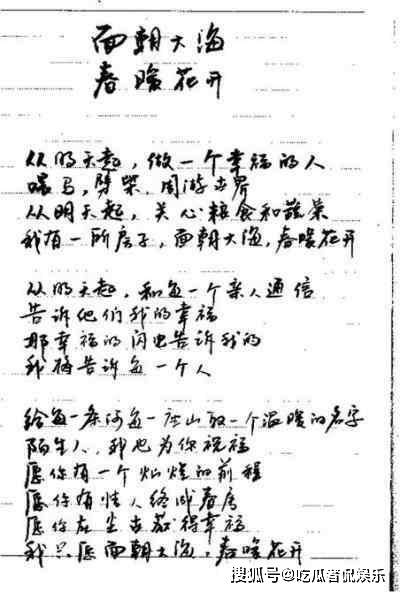 面朝大海
春暖花开
从明天起，做一个幸福的人
喂马，劈柴，周游世界
从明天起，关心粮食和蔬菜
我有一所房子，面朝大海，春暖花开
从明天起，和每一个亲人通信
告诉他们我的幸福
那幸福的闪电告诉我的
我将告诉每一个人
给每一条河每一座山取一个温暖的名字
陌生人，我也为你祝福
愿你有一个灿烂的前程
愿你有情人终成眷属
愿你在尘世获得幸福
我只愿面朝大海，春暖花开
搜狐号@吃瓜者侃娱乐